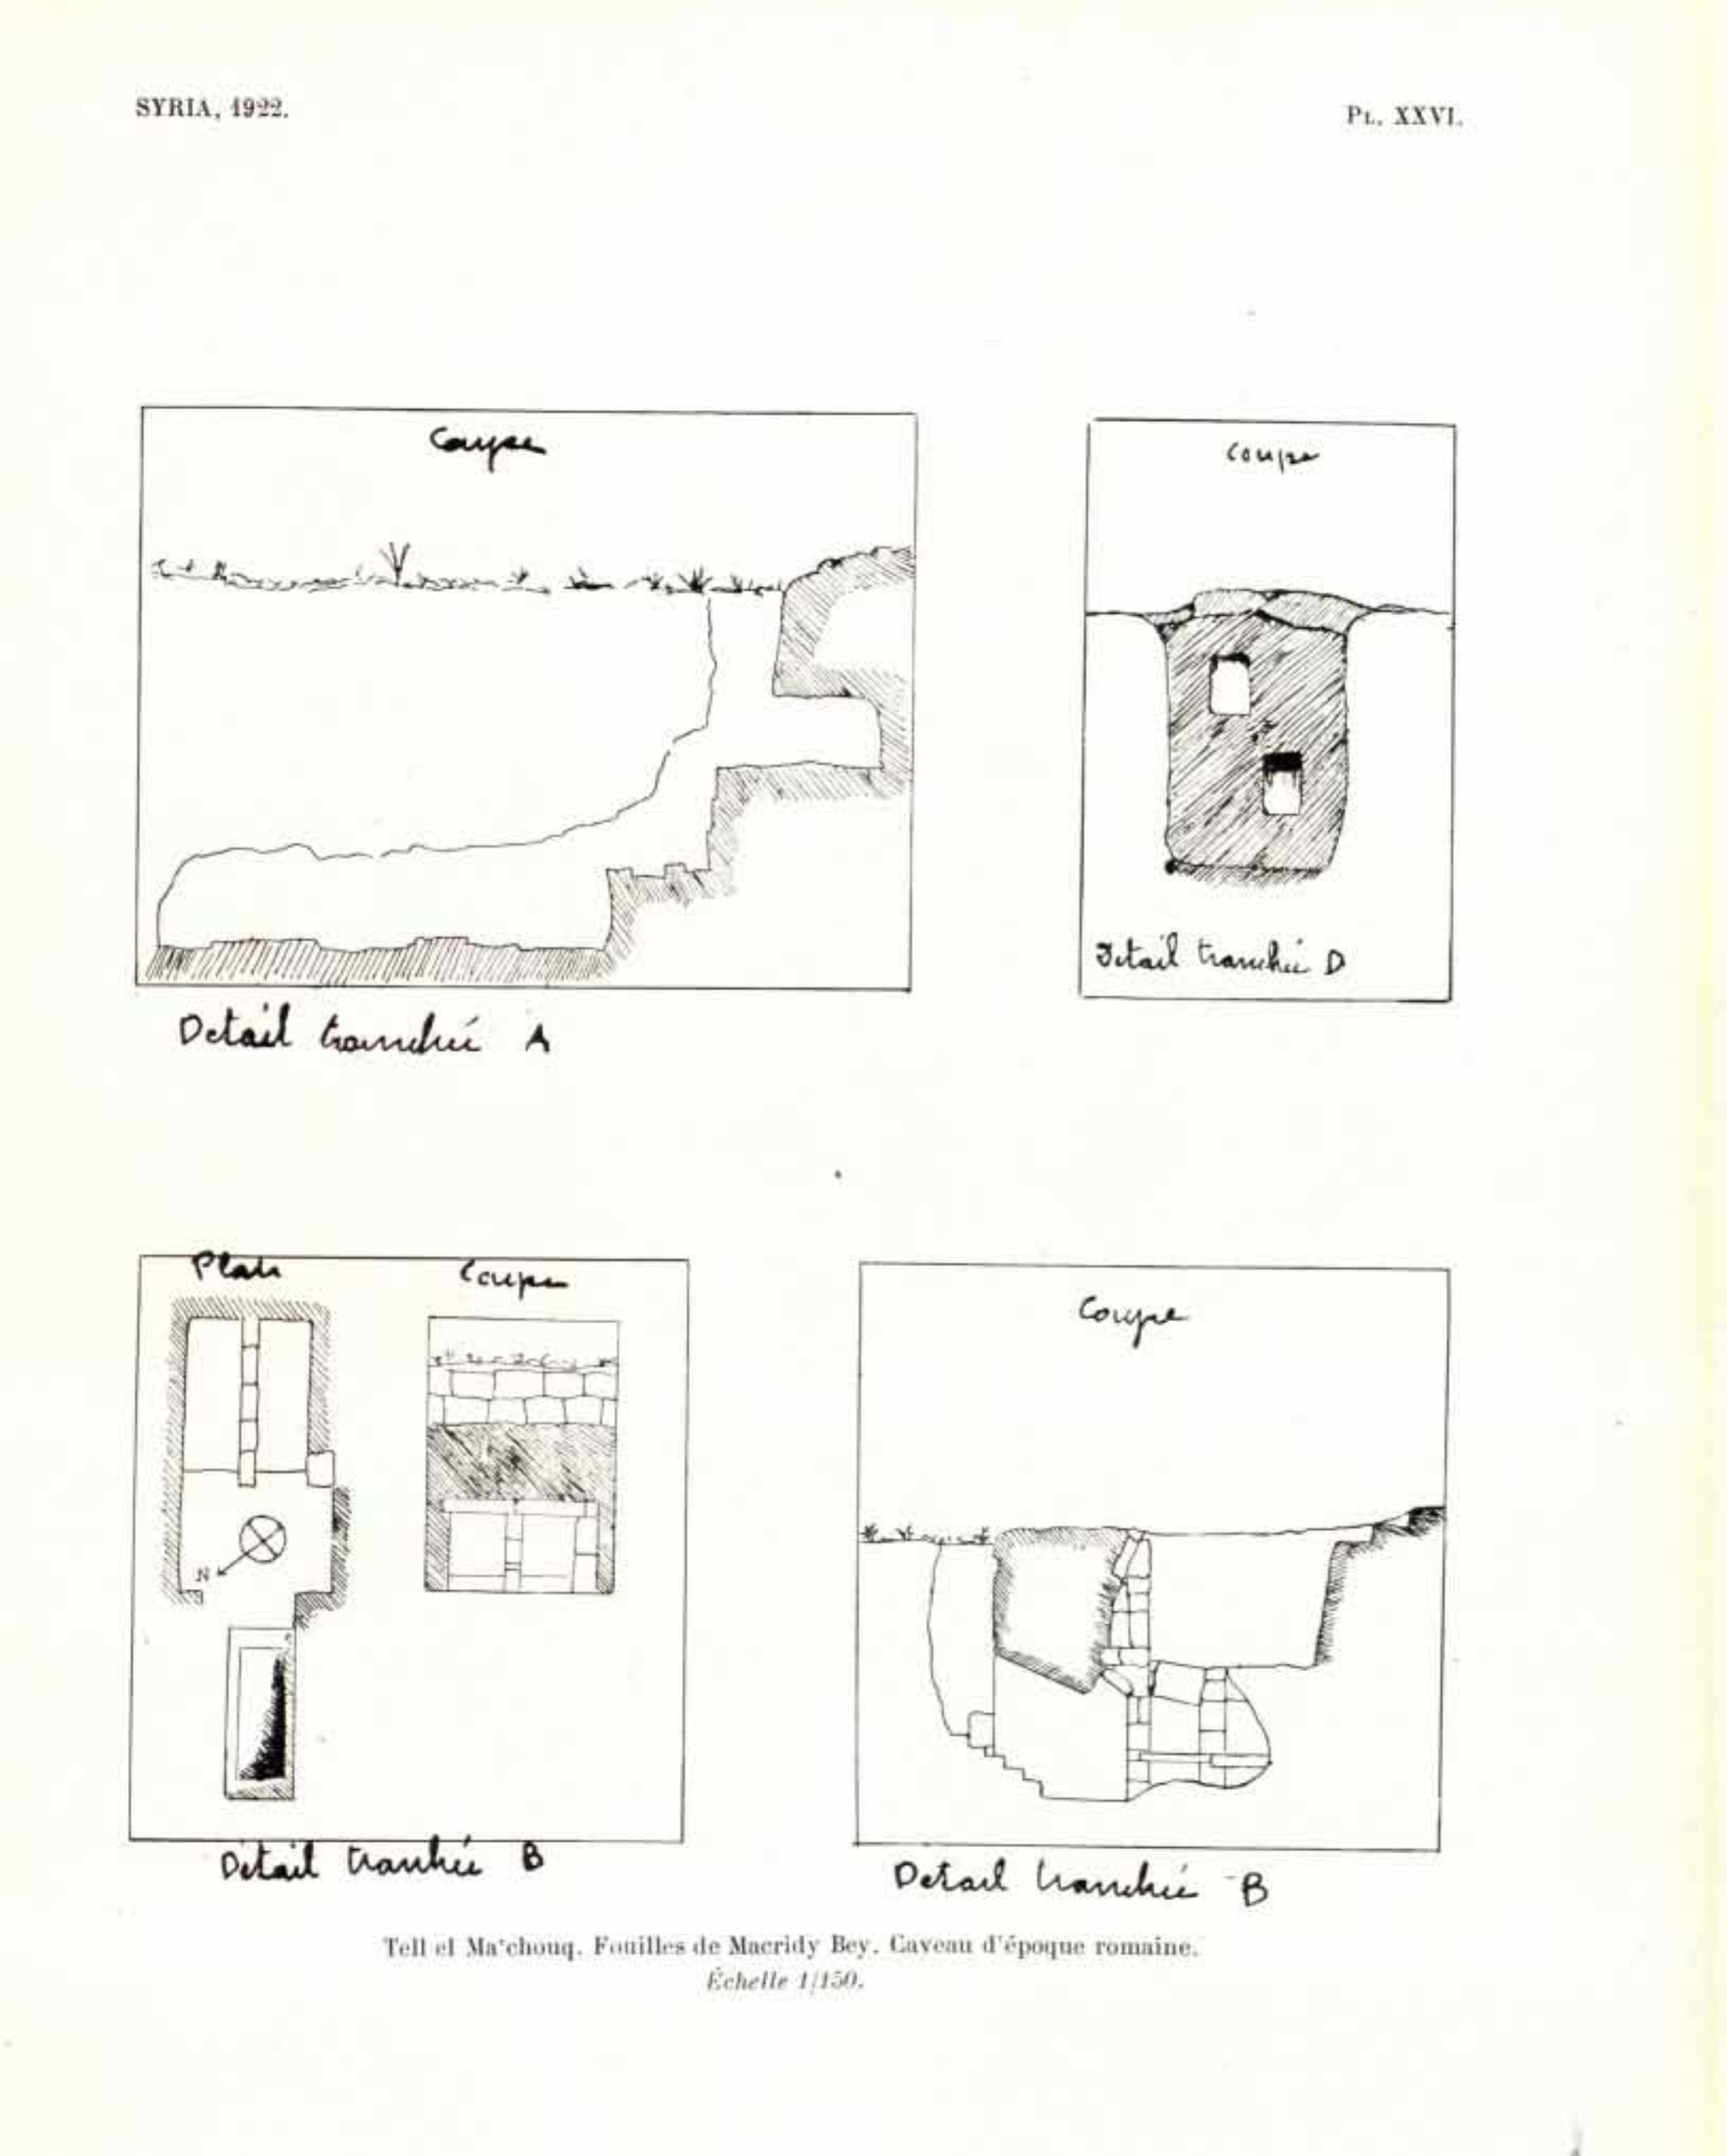 SYRIA, 1922.
PL. XXVI.
Coupe
Coupe
Detail tranchée D
Detail tranchée A
Plan
Coupe
N
Coupe
Detail tranchée B
Detail tranchée B
Tell el Ma'chouq. Fouilles de Macridy Bey. Caveau d'époque romaine.
Échelle 1/150.